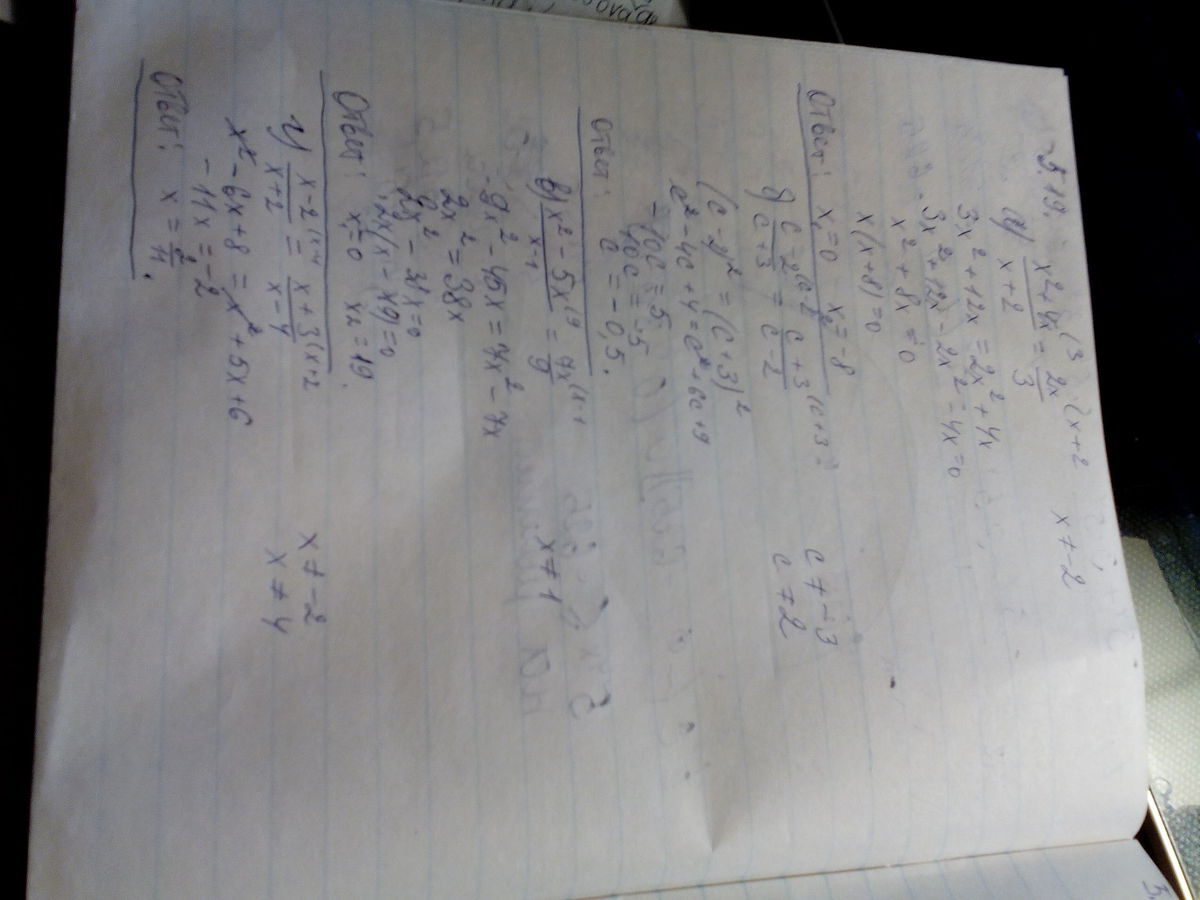 5.19.
а) x²+4x/x+2 (3 = 2x/3 (x+2 x≠-2
3x²+12x=2x²+4x
3x²+12x-2x²-4x=0
x²+8x=0
x(x+8)=0
Ответ: x₁=0 x₂=-8
б) c-2/c+3 (c-2 = c+3/c-2 (c+3 c≠-3
c≠2
(c-2)²=(c+3)²
c²-4c+4=c²+6c+9
-10c=5
10c=-5
c=-0,5.
Ответ:
в) x²-5x/x-1 (9 = 7x/9 (x-1 x≠1
9x²-45x=7x²-7x
2x²=38x
2x²-38x=0
2x(x-19)=0
Ответ: x₁=0 x₂=19.
г) x-2/x+2 (x-4 = x+3/x-4 (x+2 x≠-2
x≠4
x²-6x+8=x²+5x+6
-11x=-2
Ответ: x=2/11.